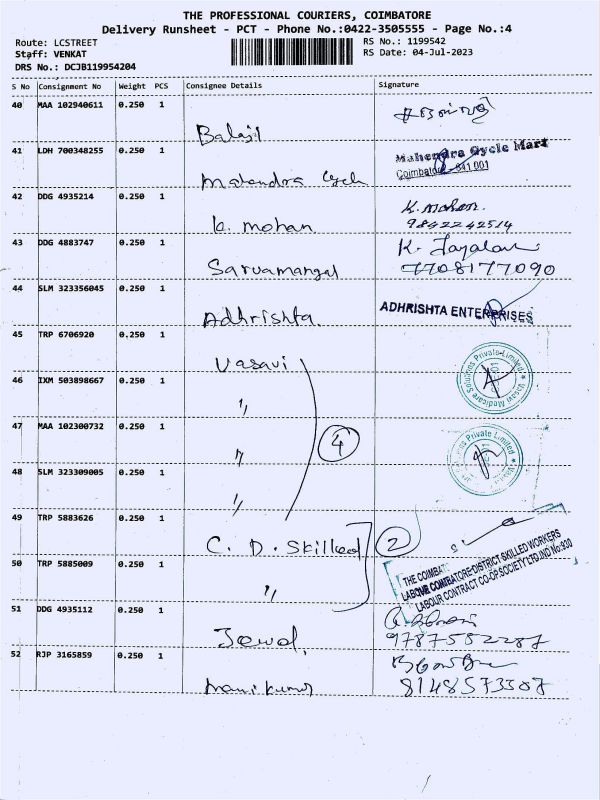 THE PROFESSIONAL COURIERS, COIMBATORE
Delivery Runsheet - PCT - Phone No.:0422-3505555 - Page No.:4
Route: LCSTREET
Staff: VENKAT
DRS No.: DCJB119954204
RS No.: 1199542
RS Date: 04-Jul-2023
S No Consignment No Weight PCS Consignee Details Signature
40 MAA 102940611 0.250 1
Balaji
41 LDH 700348255 0.250 1
Mahendra Cycle
Mahendra Cycle Mart
Coimbatore - 641 001
42 DDG 4935214 0.250 1
K. mohan
K. mohan.
9842242514
43 DDG 4883747 0.250 1
Sarvamangal
K. Jayalaxmi
7708177090
44 SLM 323356045 0.250 1
Adhrishta.
ADHRISHTA ENTERPRISES
45 TRP 6706920 0.250 1
Vasavi
Vasavi Medicare Solutions Private Limited
46 IXM 503898667 0.250 1
"
47 MAA 102300732 0.250 1
"
4
Private Limited
48 SLM 323309005 0.250 1
"
49 TRP 5883626 0.250 1
C. D. Skilled
2
THE COIMBATORE DISTRICT SKILLED WORKERS
LABOUR CONTRACT CO-OP.SOCIETY LTD.IND No:930
50 TRP 5885009 0.250 1
"
51 DDG 4935112 0.250 1
Jewal,
9787552287
52 RJP 3165859 0.250 1
manikumar
8148573307